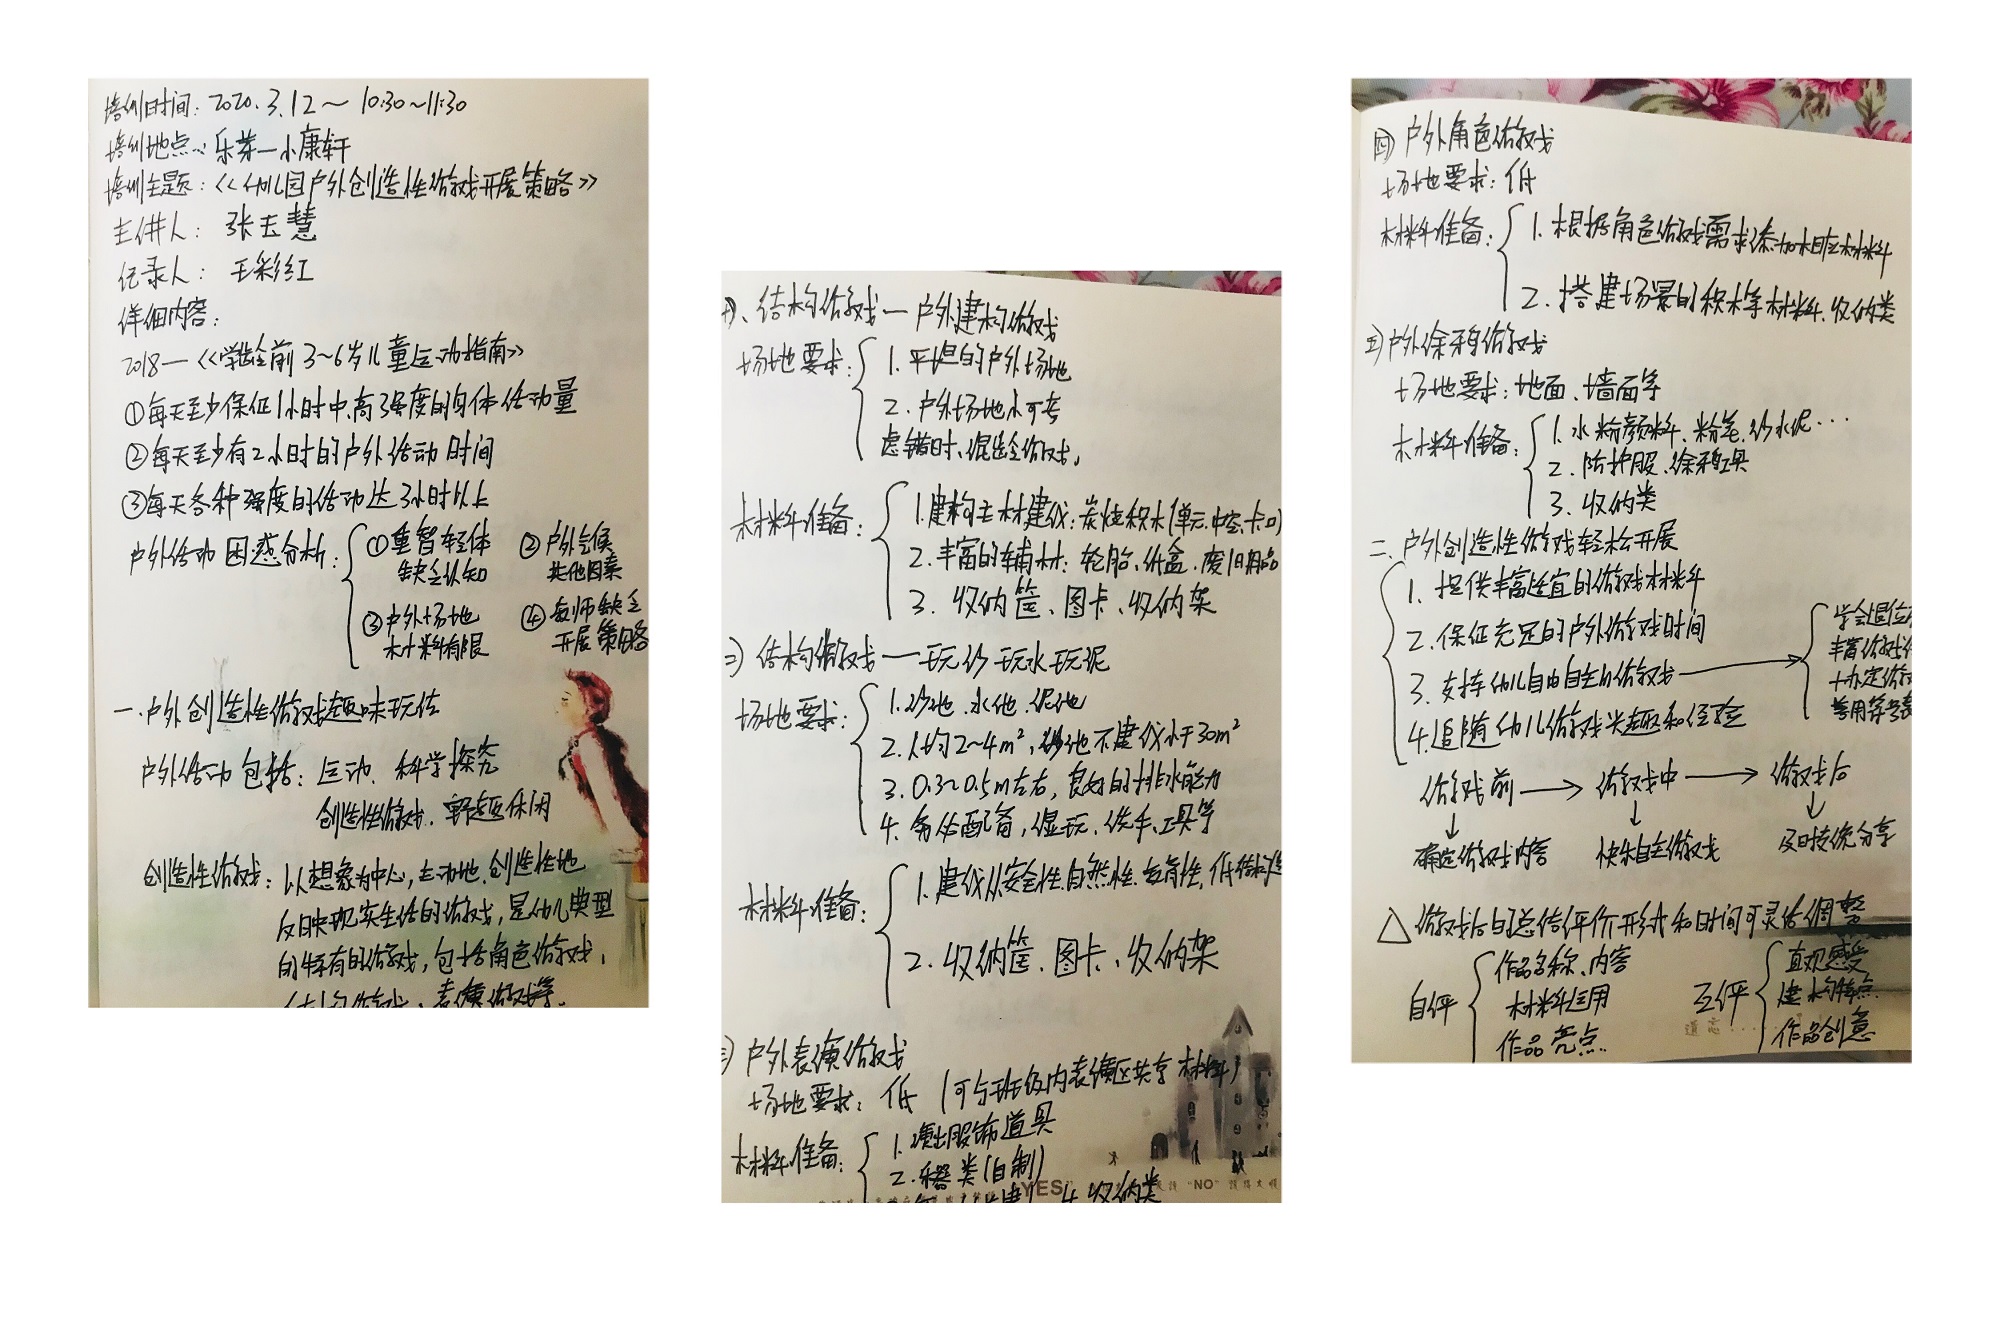 培训时间：2020.3.12～ 10:30～11:30
培训地点：乐芽—小康轩
培训主题：《幼儿园户外创造性游戏开展策略》
主讲人：张玉慧
纪录人：王彩红
详细内容：
2018—《学龄前3～6岁儿童运动指南》
①每天至少保证1小时中、高强度的身体活动量
②每天至少有2小时的户外活动时间
③每天各种强度的活动达3小时以上
户外活动困惑分析：
①重智轻体
缺乏认知
②户外气候
其他因素
③户外场地
材料有限
④教师缺乏
开展策略
一、户外创造性游戏趣味玩法
户外活动包括：运动、科学探究
创造性游戏、野趣休闲
创造性游戏：以想象为中心，主动地、创造性地
反映现实生活的游戏，是幼儿典型
的特有的游戏，包括角色游戏、
结构游戏、表演游戏等。
结构游戏—户外建构游戏
场地要求：
1.平坦的户外场地
2.户外场地小可考
虑错时、混龄游戏。
材料准备：
1.建构主材建议：炭烧积木(单元、中空、卡口)
2.丰富的辅材：轮胎、纸盒、废旧用品
3.收纳筐、图卡、收纳架
二)结构游戏——玩沙玩水玩泥
场地要求：
1.沙池、水池、泥池
2.人均2～4m²，沙池不建议小于30m²
3.0.3～0.5m左右，良好的排水能力
4.务必配备，湿玩、洗手、工具等
材料准备：
1.建议从安全性、自然性、教育性、低结构
2.收纳筐、图卡、收纳架
三)户外表演游戏
场地要求：低(可与班级内表演区共享材料)
材料准备：
1.演出服饰道具
2.乐器类(自制)
4.收纳类
YES
"NO"
四)户外角色游戏
场地要求：低
材料准备：
1.根据角色游戏需求添加相应材料
2.搭建场景的积木等材料、收纳类
五)户外涂鸦游戏
场地要求：地面、墙面等
材料准备：
1.水粉颜料、粉笔、沙水泥...
2.防护服、涂鸦工具
3.收纳类
二、户外创造性游戏轻松开展
1.提供丰富适宜的游戏材料
2.保证充足的户外游戏时间
3.支持幼儿自由自主的游戏→
学会退位
丰富游戏
4.追随幼儿游戏兴趣和经验
游戏前→游戏中→游戏后
↓ ↓ ↓
确定游戏内容 快乐自主游戏 及时表演分享
△游戏后的总结评价形式和时间可灵活调整
自评
作品名称、内容
材料运用
作品亮点
互评
直观感受
建构特点
作品创意